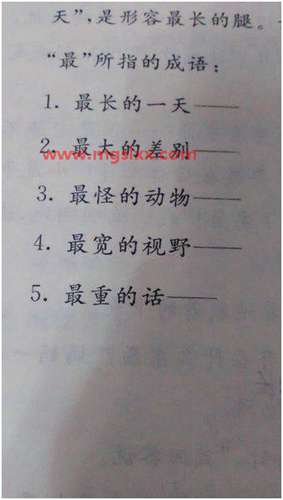 天”,是形容最长的腿。
“最”所指的成语:
1. 最长的一天——
2. 最大的差别——
www.mgslxx.com
3. 最怪的动物——
4. 最宽的视野——
5. 最重的话——